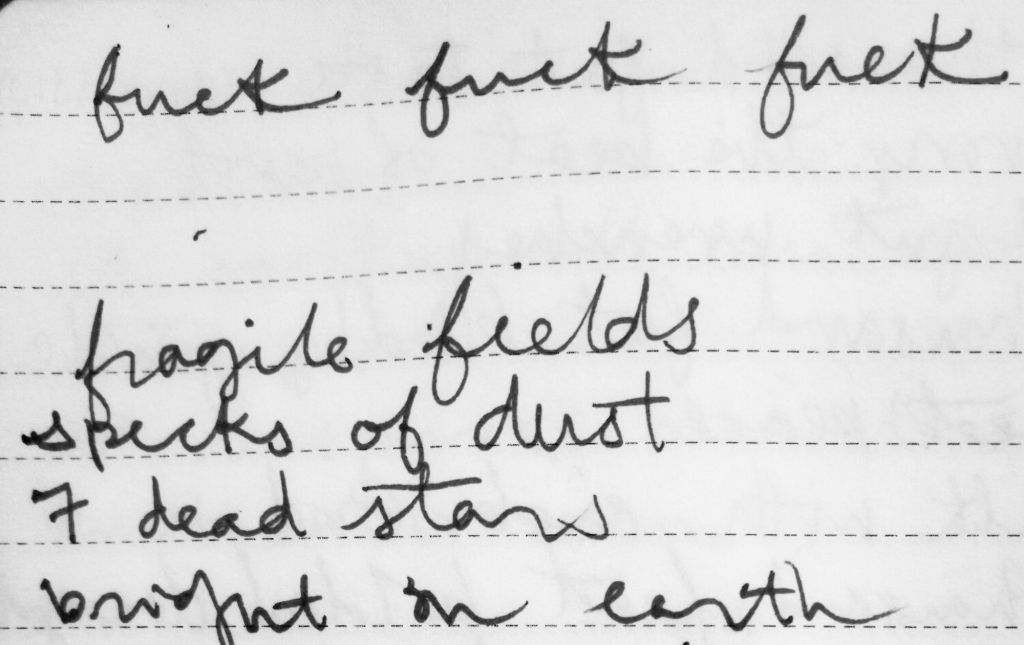 fuck fuck fuck
fragile fields
specks of dust
7 dead stars
bright on earth